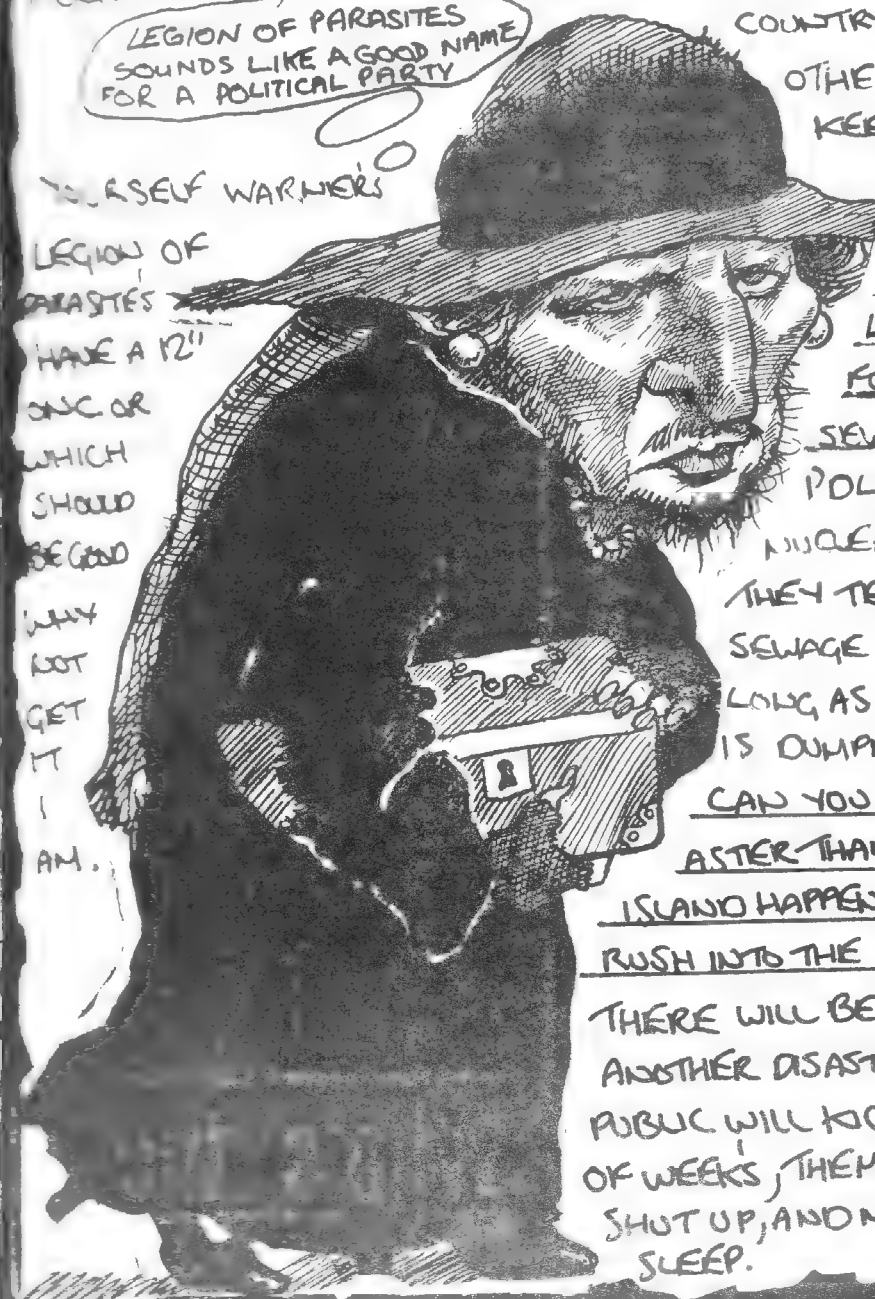 LEGION OF PARASITES
SOUNDS LIKE A GOOD NAME
FOR A POLITICAL PARTY
WARNERS
LEGION OF
PARASITES
HAVE A 12"
ONE OR
WHICH
SHOULD
BE GOOD
WHY
NOT
GET
IT
I
AM.
COUNTR
OTHE
KEE
L
FO
SEW
POL
NUCLE
THEY TE
SEWAGE
LONG AS
IS DUMP
CAN YOU
ASTER THAN
ISLAND HAPPEN
RUSH INTO THE
THERE WILL BE
ANOTHER DISAST
PUBLIC WILL KIC
OF WEEKS, THEM
SHUT UP, AND
SLEEP.